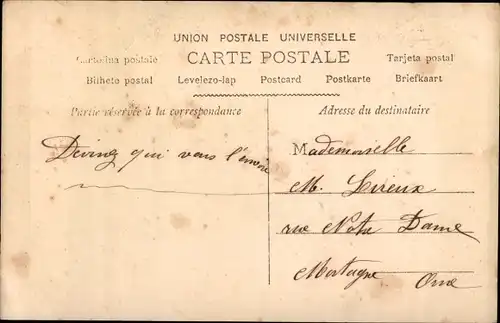 UNION POSTALE UNIVERSELLE
CARTE POSTALE
Cartolina postale Tarjeta postal
Bilheto postal Levelezo-lap Postcard Postkarte Briefkaart
Partie réservée à la correspondance
Adresse du destinataire
Devinez qui vous l'envoie
Mademoiselle
M. Lereux
rue Notre Dame
Mortagne Orne